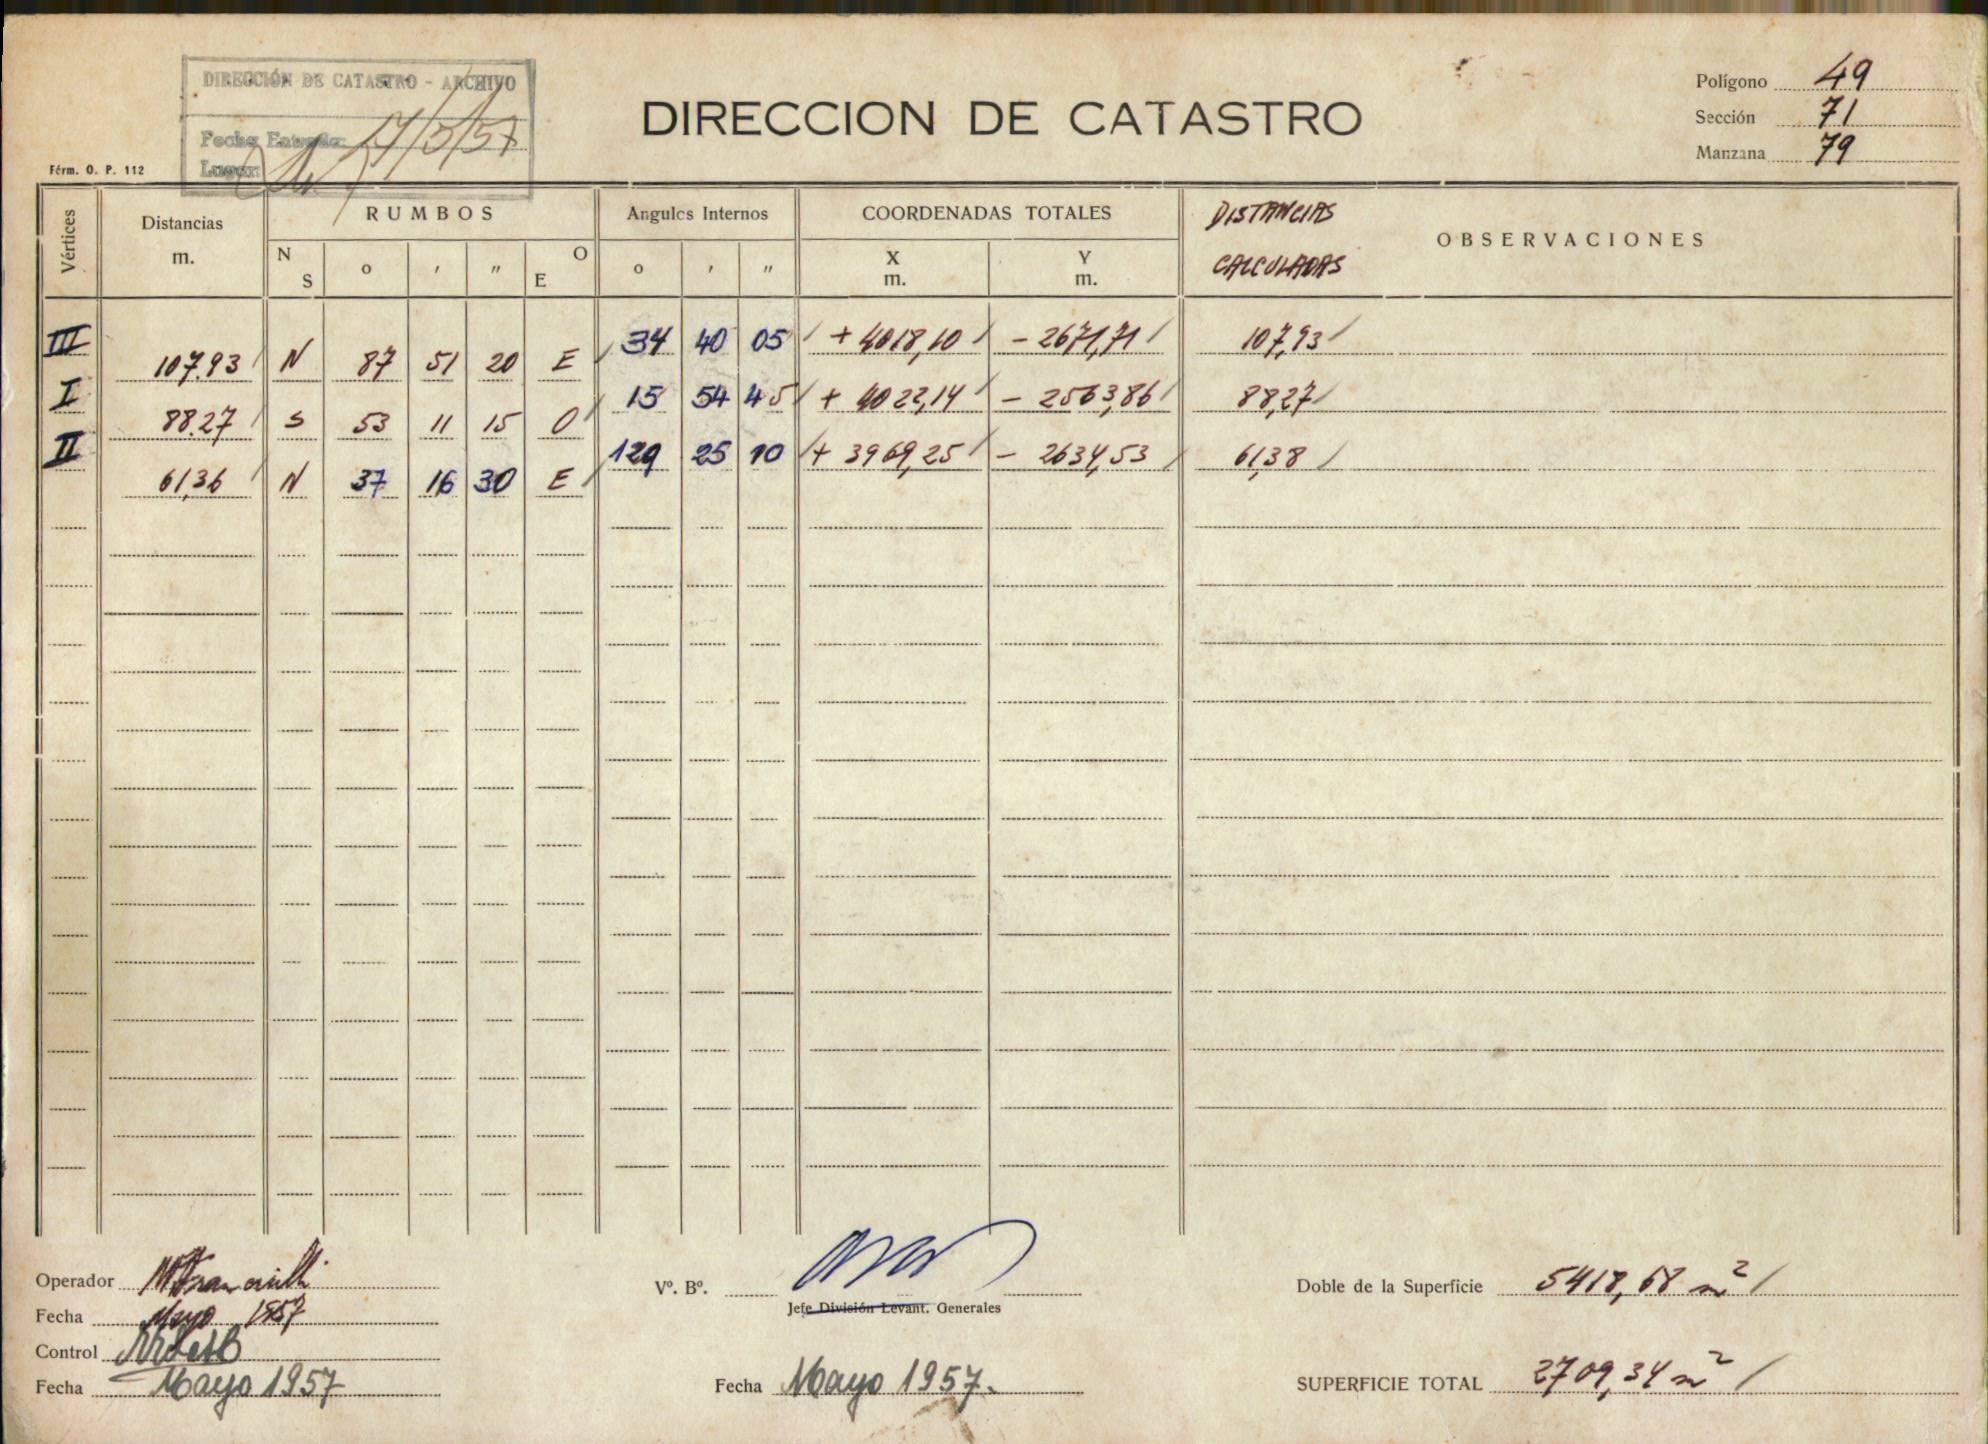 DIRECCIÓN DE CATASTRO - ARCHIVO
Fecha Entrada: 17/5/57
Lugar:
DIRECCION DE CATASTRO
Polígono 49
Sección 71
Manzana 79
Fórm. O. P. 112
Vértices Distancias m. RUMBOS Angulos Internos COORDENADAS TOTALES DISTANCIAS CALCULADAS OBSERVACIONES
N S o ' " O E o ' " X m. Y m.
III 34 40 05 + 4018,10 - 2671,71 107,93
107.93 N 87 51 20 E
I 15 54 45 + 4022,14 - 2563,86 88,27
88.27 S 53 11 15 O
II 129 25 10 + 3969,25 - 2634,53 61,38
61,36 N 37 16 30 E
Operador
Fecha Mayo 1957
Control
Fecha Mayo 1957
Vº. Bº.
Jefe División Levant. Generales
Fecha Mayo 1957.
Doble de la Superficie 5418,68 m²
SUPERFICIE TOTAL 2709,34 m²